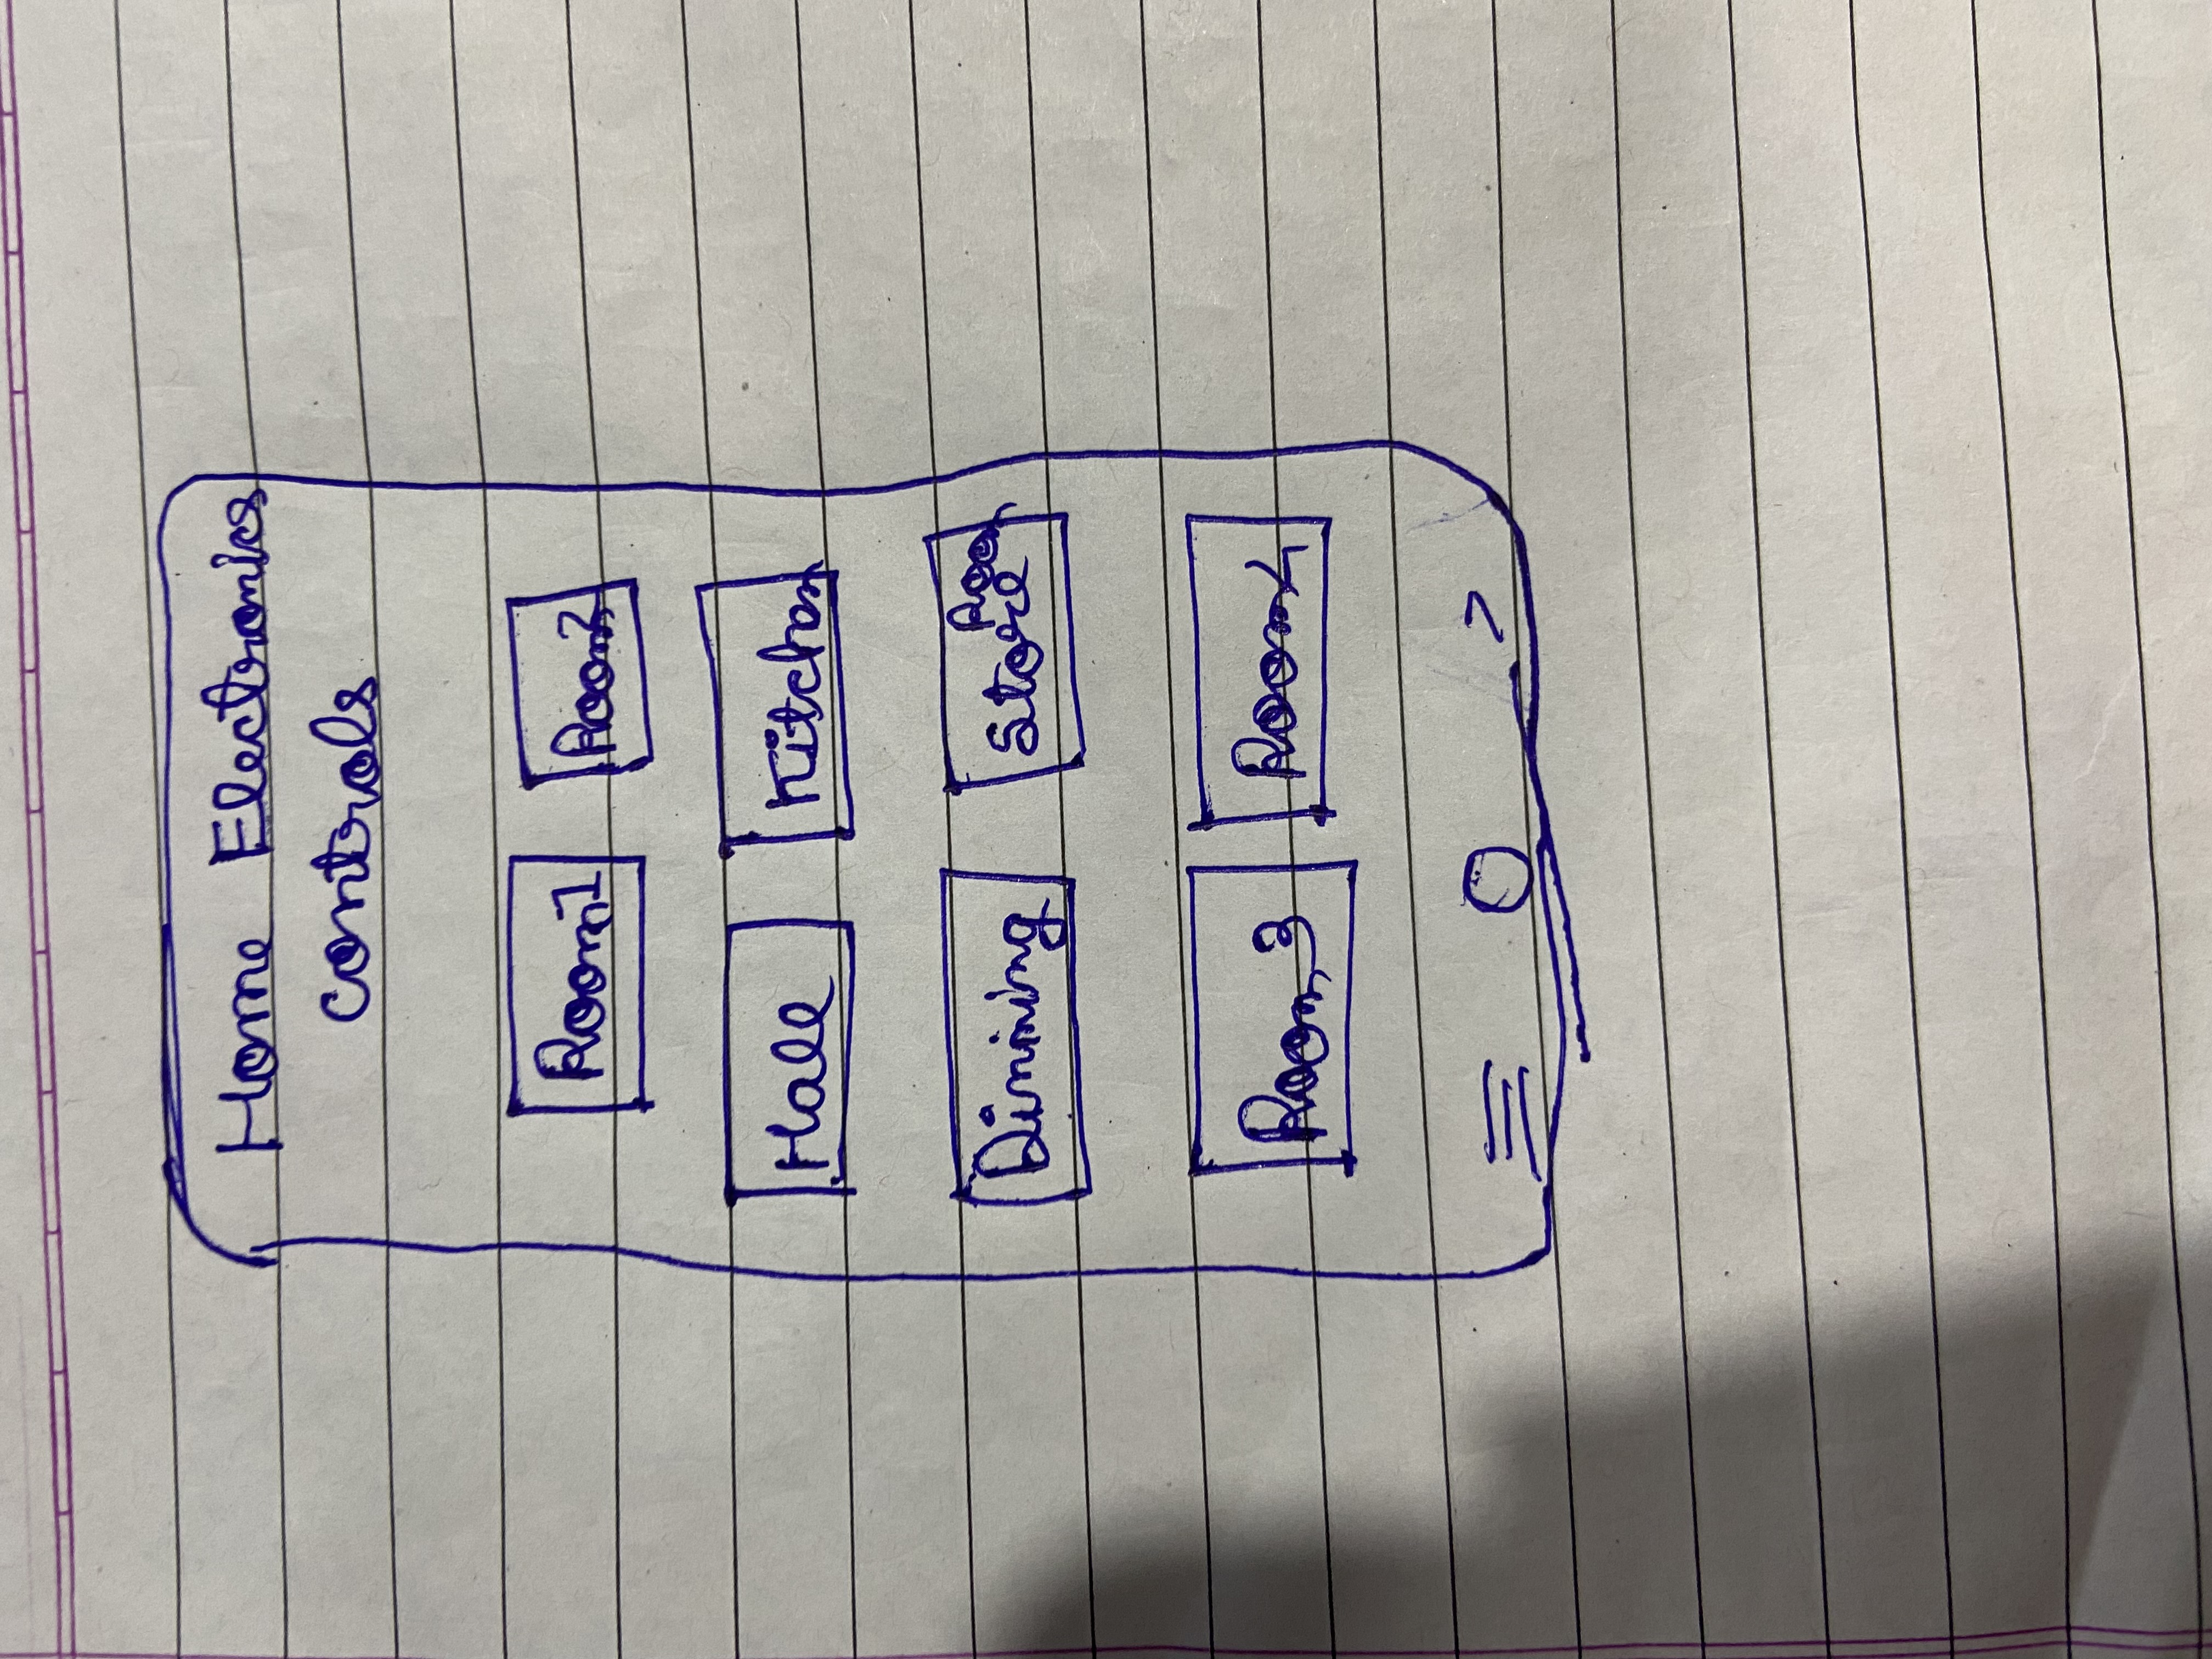 Home Electronics
controls
Room1
Room2
Hall
Kitchen
Dinning
Store Room
Room 3
Room4